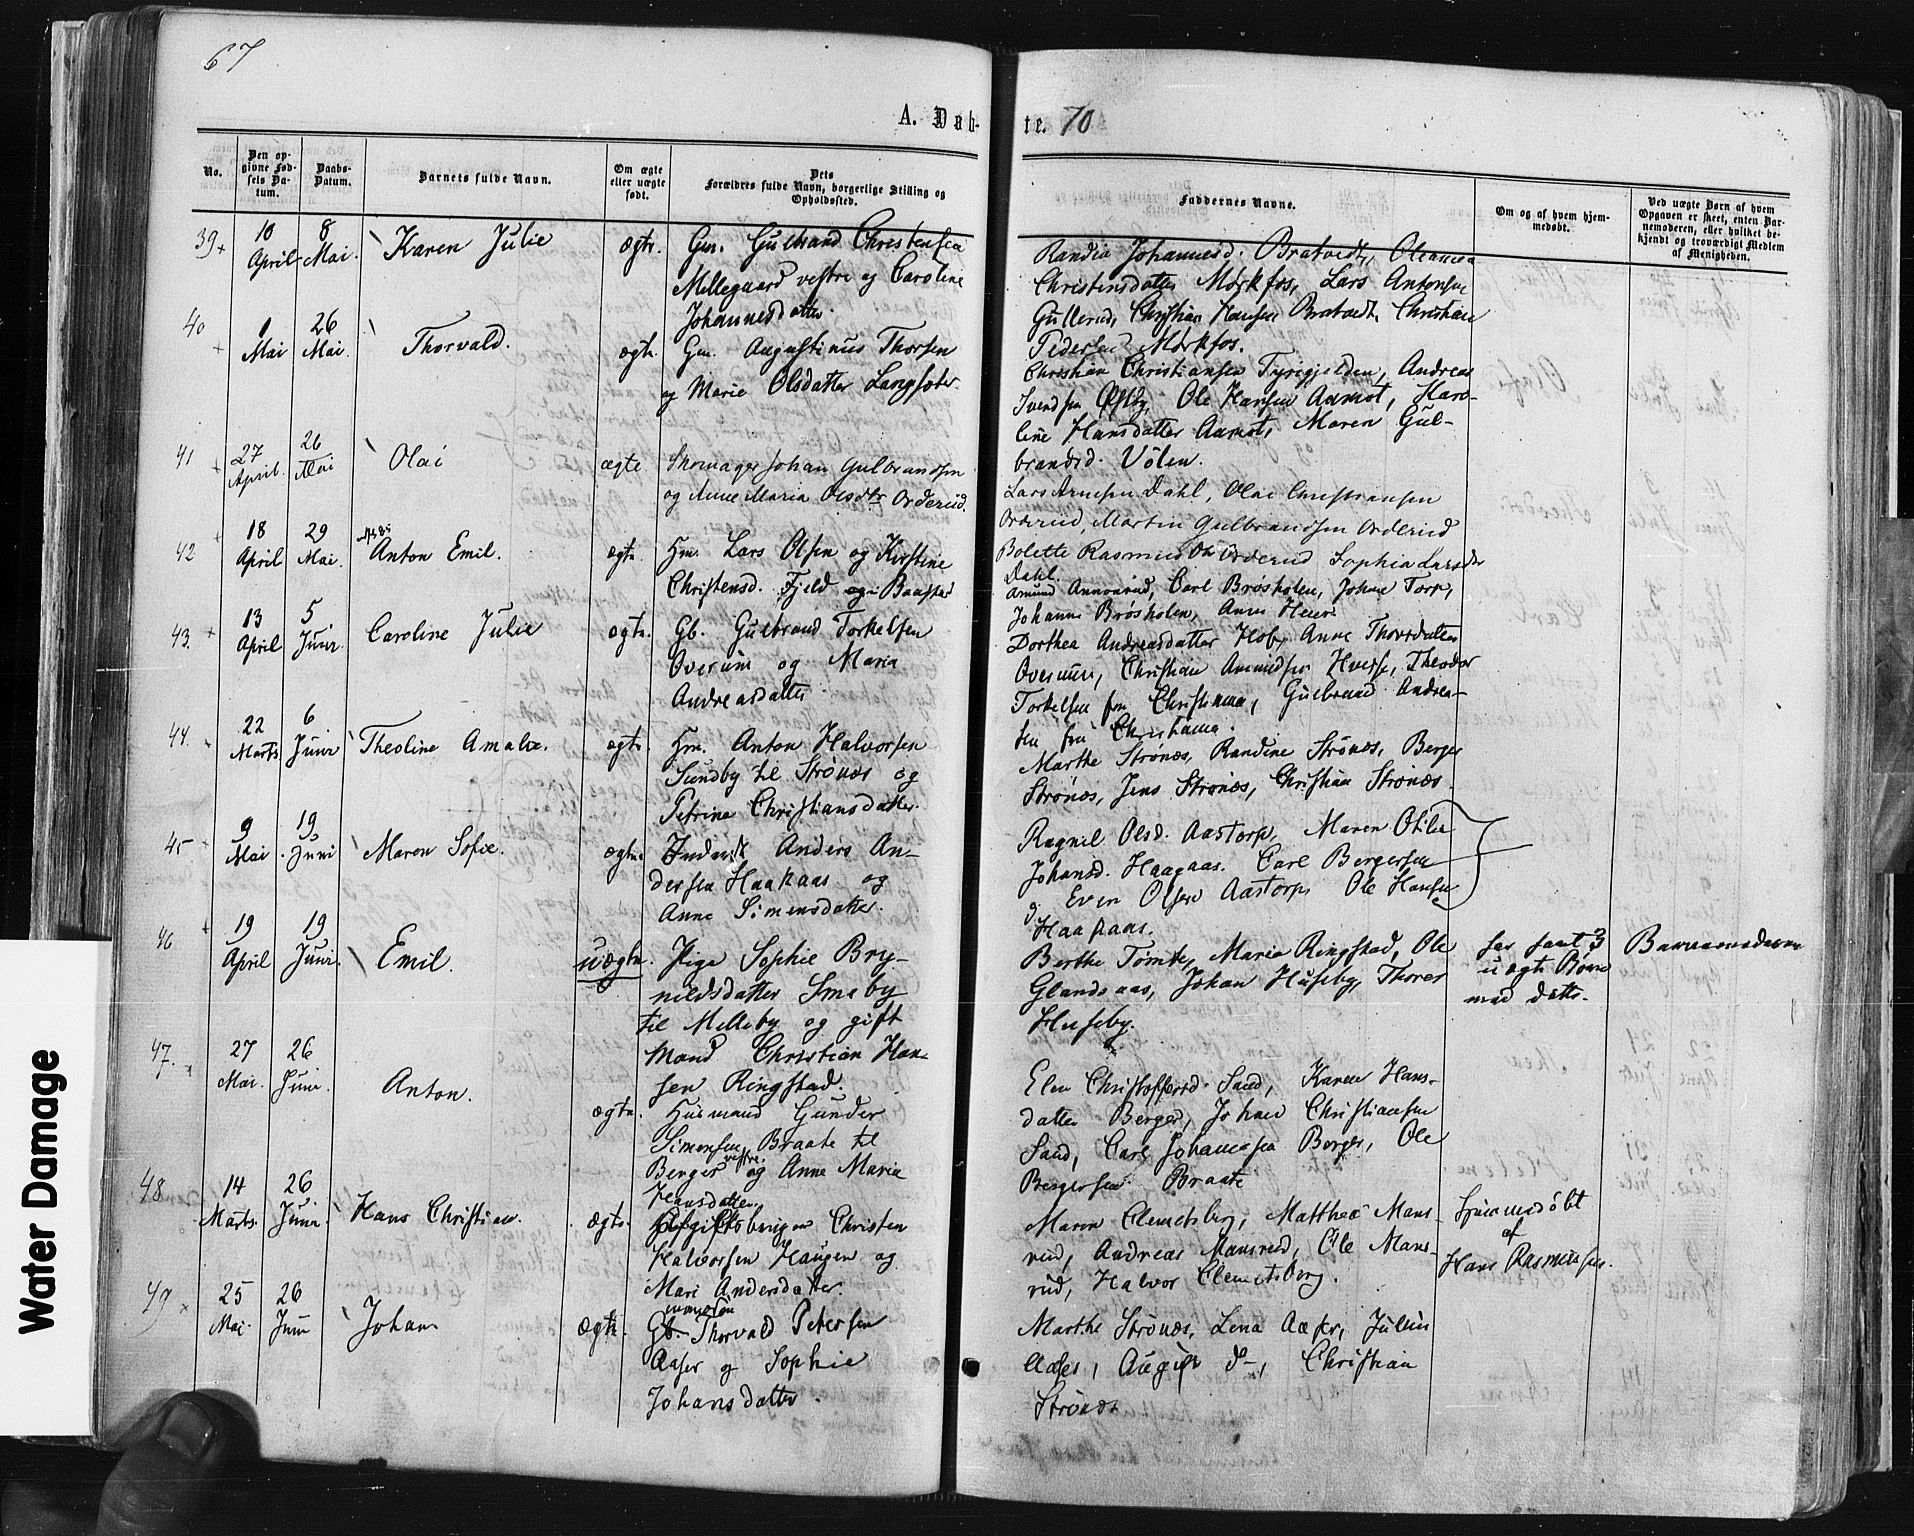 67
A. Døb-
te. 70
No.
Den op-
givne Fød-
sels Da-
tum.
Daabs-
Datum.
Barnets fulde Navn.
Om ægte
eller uægte
født.
Dets
Forældres fulde Navn, borgerlige Stilling og
Opholdssted.
Faddernes Navne.
Om og af hvem hjem-
medøbt.
Ved uægte Børn af hvem
Opgaven er skeet, enten Bar-
nemoderen, eller hvilket be-
kjendt og troværdigt Medlem
af Menigheden.
39 10 April 8 Mai Karen Julie ægte. Gm. Gulbrand Christensen
Mellegaard vestre og Caroline
Johannesdatter.
Johannesd. Bratvedt,
Christensdatter Mørkfos, Lars Antonsen
Gullerud, Christian Hansen Bratvedt, Christian
Pedersen Mørkfos.
40 1 Mai 26 Mai. Thorvald. ægte. Gm. Augustinus Thorsen
og Marie Olsdatter Langsæter
Christian Christiansen Tyrigjelden, Andreas
Svendsen Østby, Ole Hansen Aamot, Karo-
line Hansdatter Aamot, Maren Gul-
brandsd. Volen.
41 27 April. 26 Mai Olai ægte. Skomager Johan Gulbrandsen
og Anne Maria Olsdtr Orderud.
Lars Arnesen Dahl, Olai Christiansen
Orderud, Martin Gulbrandsen Orderud
Bolette Rasmusdtr Orderud Sophia Larsdtr
Dahl.
42 18 April 29 Mai. Anton Emil. ægte. Hm. Lars Olsen og Kirstine
Christensd. Fjeld
Amund Annonrud, Carl Brøsholen, Johan Torp,
Johanne Brøsholen, Anne Heier
43. 13 April 5 Juni. Caroline Julie ægte. Gb. Gulbrand Torkelsen
Overum og Maria
Andreasdatter
Dorthea Andreasdatter Hob, Anne Thorsdatter
Overum, Christian Amundsen Theodor
Torkelsen fra Christiania, Gulbrand Andrea-
sen fra Christiania.
44. 22 Marts 6 Juni Theoline Amalie. ægte. Hm. Anton Halvorsen
Sundby til Strønæs og
Petrine Christiansdatter.
Marthe Strønæs, Randine Strønæs, Berger
Strønæs, Jens Strønæs, Christian Strønæs.
45 9 Mai 19 Juni Maren Sofie. ægte. Inderst Anders An-
dersen Haakaas og
Anne Simensdatter.
Ragnil Olsd. Aastorp, Maren Otilie
Johansd. Haagaas. Carl Bergersen
Even Olsen Aastorp Ole Hansen
Haakaas.
46 19 April 19 Juni. Emil. uægte. Pige Sophie Bry-
nildsdatter Smeby
til Melleby og gift
Mand Christian Han-
sen Ringstad.
Berthe Tomte, Maria Ringstad, Ole
Glandsaas, Johan Huseby, Thorer
Huseby.
3
uægte Børn
med dette.
Barnemoderen
47. 27 Mai. 26 Juni Anton. ægte. Husmand Gunder
Simensen Braate til
Berger vestre og Anne Maria
Hansdatter
Elen Christoffersd. Sand, Karen Hans-
datter Berger, Johan Christiansen
Sand, Carl Johansen Berger, Ole
Bergersen Braate
48 14 Marts. 26 Juni Hans Christian. ægte. Christen
Halvorsen Haugen og
Mari Andersdatter.
Maren Clemetsberg, Matthea Mans-
rud, Andreas Mansrud, Ole Mans-
rud, Halvor Clemetsberg.
Hjemmedøbt
af
Hans Rasmussen.
49 25 Mai. 26 Juni Johan ægte. Gb. Thorvald Petersen
Aaser og Sophie
Johansdatter.
Marthe Strønæs, Lena Aaser, Julius
Aaser, August d-, Christian
Strønæs
Water Damage